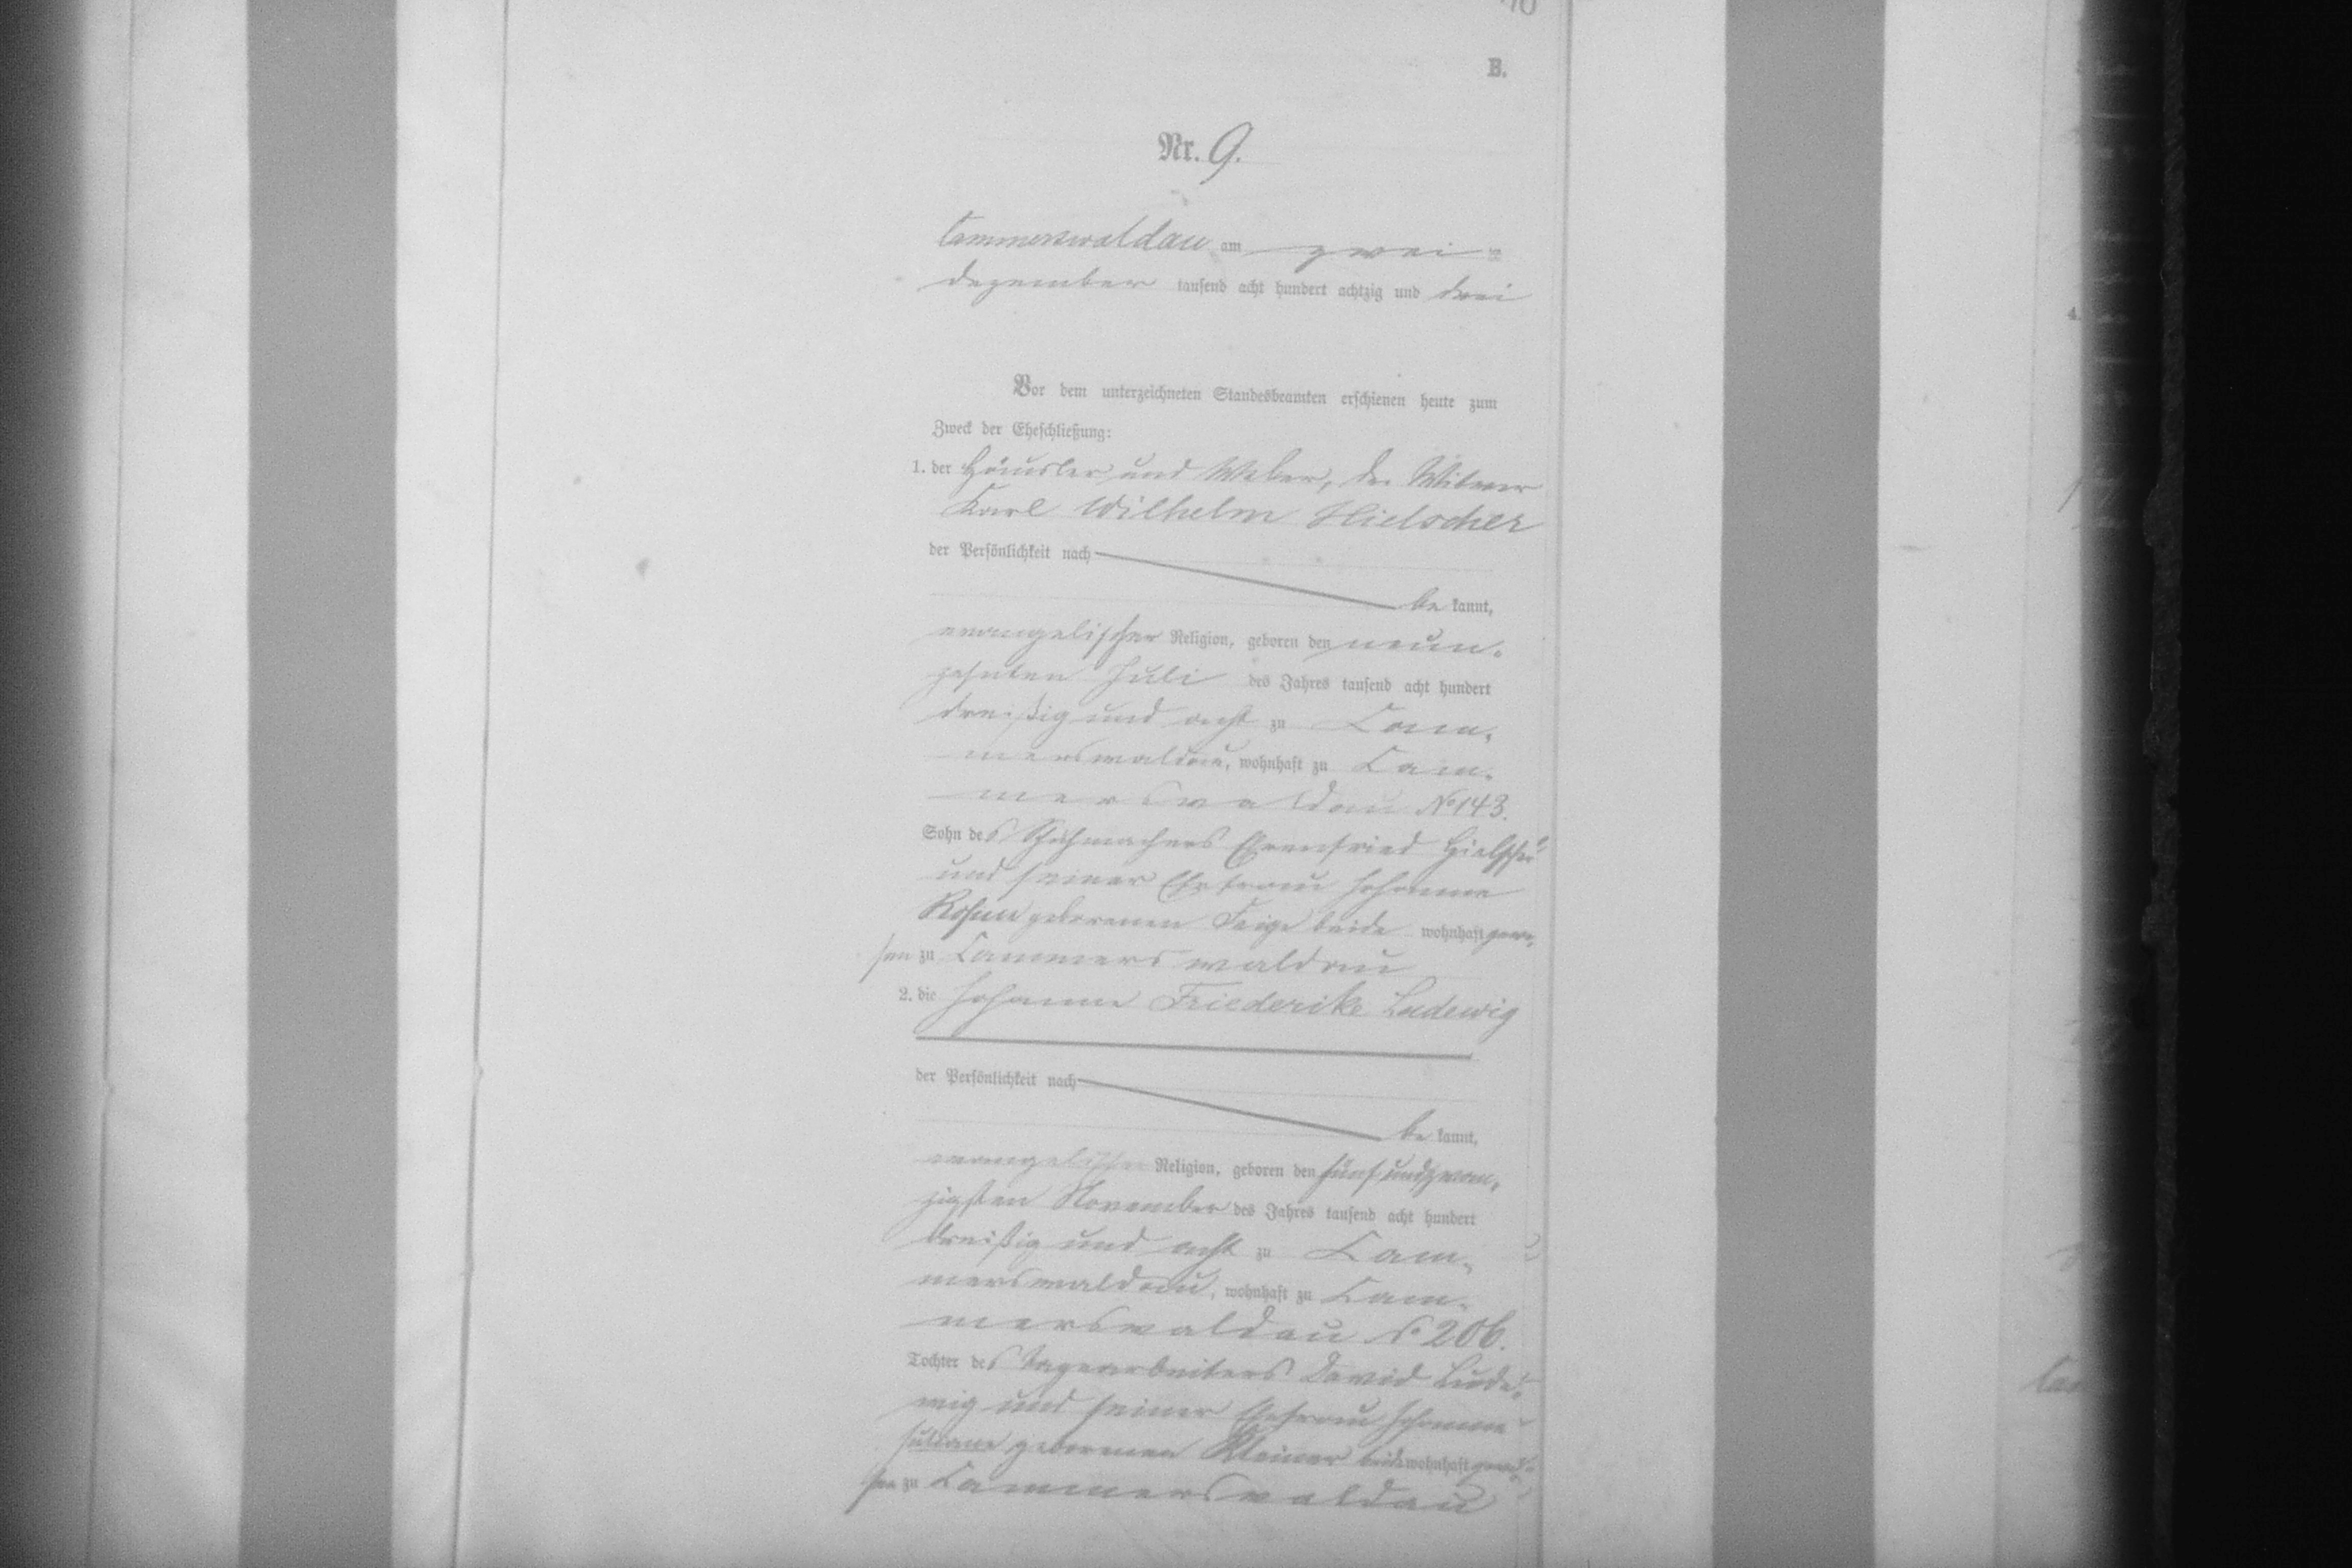 B.
Nr. 9.
Cammerswaldau am zwei
Dezember tausend acht hundert achtzig und drei
Vor dem unterzeichneten Standesbeamten erschienen heute zum
Zweck der Eheschließung:
1. der Häusler und Weber, der Witwer
Karl Wilhelm Hielscher
der Persönlichkeit nach
be kannt,
evangelischer Religion, geboren den neun-
zehnten Juli des Jahres tausend acht hundert
dreißig und acht zu Cam-
merswaldau, wohnhaft zu Cam-
merswaldau No 143.
Sohn des Schuhmachers Ehrenfried Hielscher
und seiner Ehefrau Johanne
Rosine geborenen Feige beide wohnhaft gewe-
sen zu Cammerswaldau
2. die Johanne Friederike Ludewig
der Persönlichkeit nach
be kannt,
evangelischer Religion, geboren den fünf und zwan-
zigsten November des Jahres tausend acht hundert
dreißig und acht zu Cam-
merswaldau, wohnhaft zu Cam-
merswaldau No 206.
Tochter des Tagearbeiters David Lude-
wig und seiner Ehefrau Johanne
Juliane geborenen Kleiner beide wohnhaft gewe-
sen zu Cammerswaldau